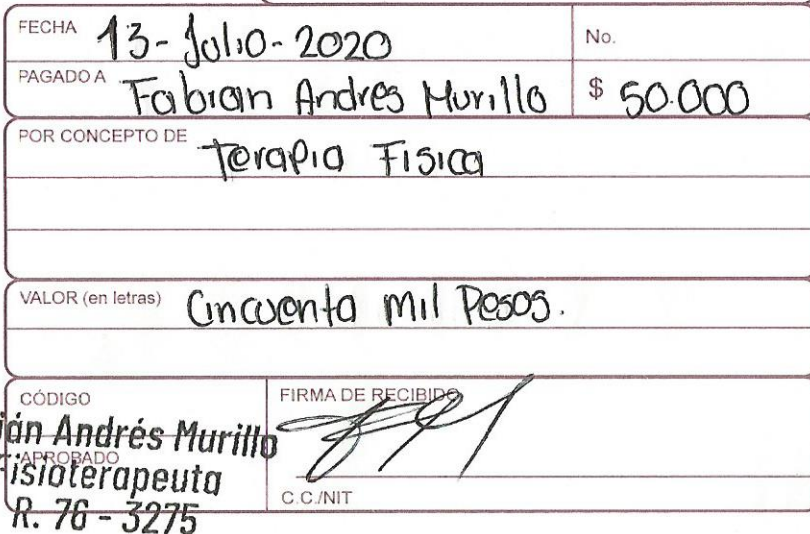 FECHA 13-Julio-2020
No.
PAGADO A Fabian Andres Murillo
$ 50.000
POR CONCEPTO DE Terapia Fisica
VALOR (en letras) Cincuenta mil Pesos.
CÓDIGO
FIRMA DE RECIBIDO
ián Andrés Murillo
APROBADO
Fisioterapeuta
C.C./NIT
R. 76 - 3275